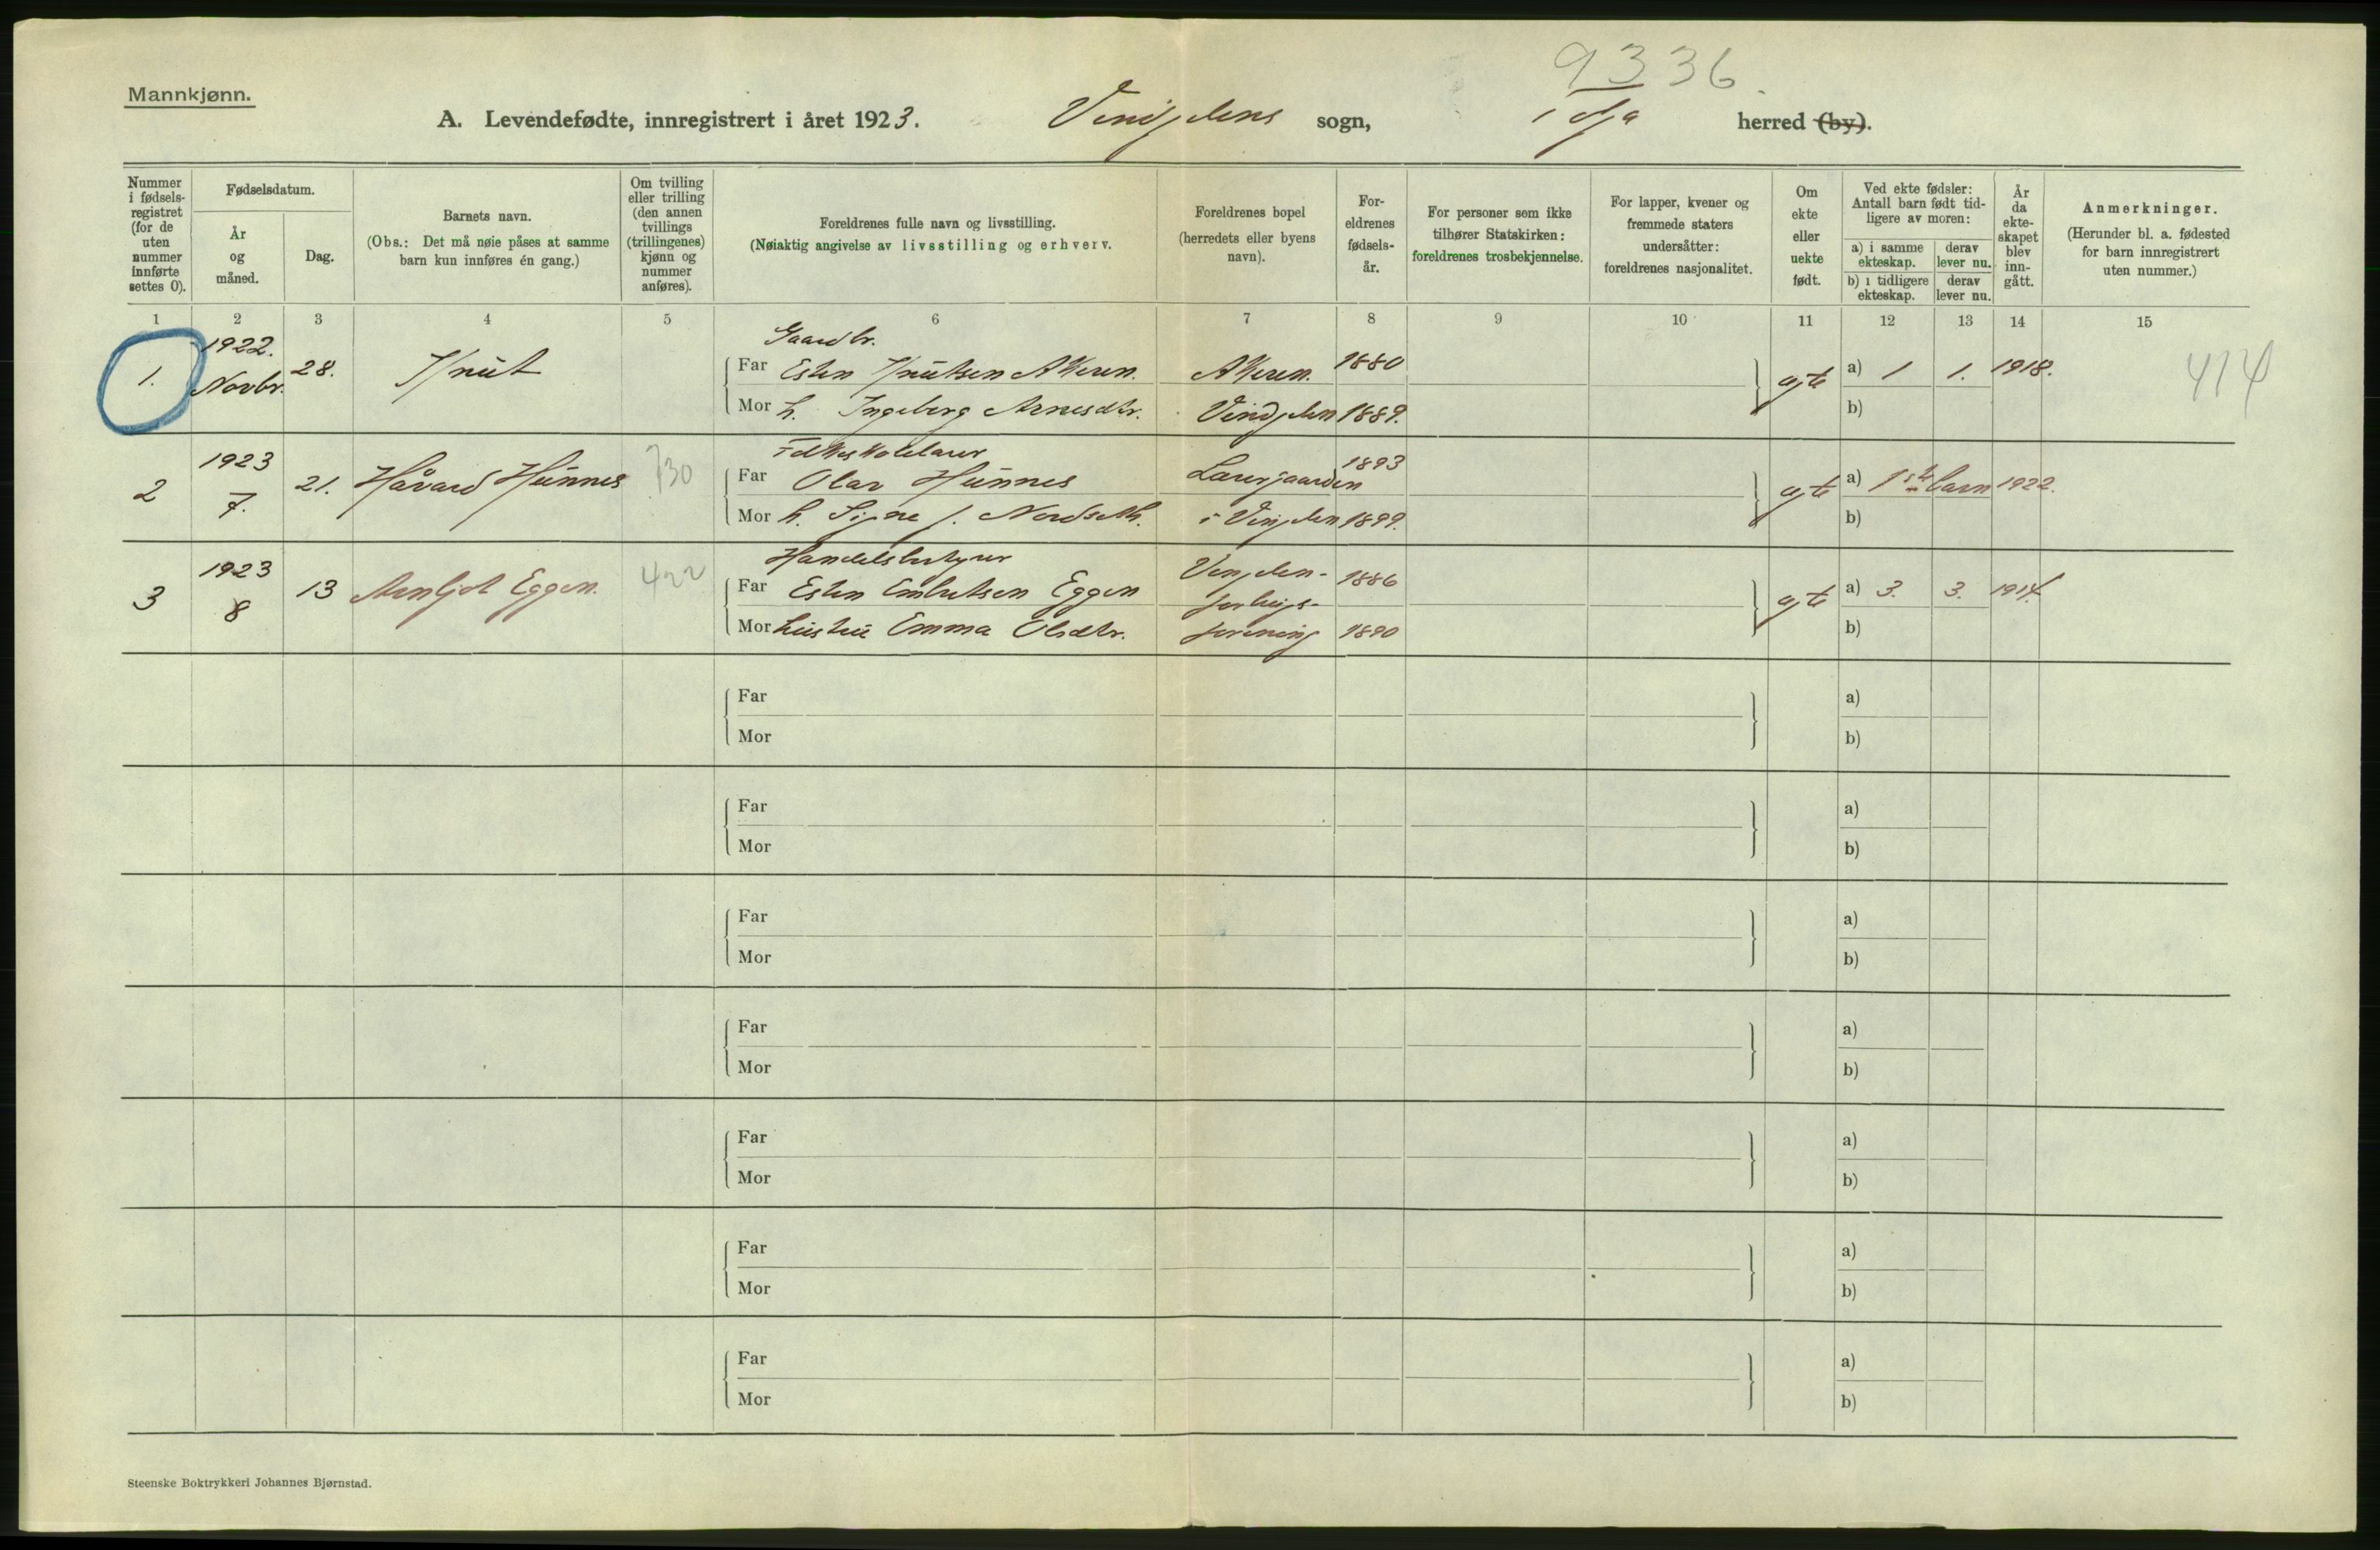 9336
Mannkjønn.
A. Levendefødte, innregistrert i året 1923. Vingelens sogn, herred (by).
Nummer i fødsels- registret (for de uten nummer innførte settes 0).
Fødselsdatum.
År og måned.
Dag.
Barnets navn.
(Obs.: Det må nøie påses at samme barn kun innføres én gang.)
Om tvilling eller trilling (den annen tvillings (trillingenes) kjønn og nummer anføres).
Foreldrenes fulle navn og livsstilling.
(Nøiaktig angivelse av livsstilling og erhverv.
Foreldrenes bopel (herredets eller byens navn).
For- eldrenes fødsels- år.
For personer som ikke tilhører Statskirken: foreldrenes trosbekjennelse.
For lapper, kvener og fremmede staters undersåtter: foreldrenes nasjonalitet.
Om ekte eller uekte født.
Ved ekte fødsler: Antall barn født tid- ligere av moren:
a) i samme ekteskap.
derav lever nu.
b) i tidligere ekteskap.
derav lever nu.
År da ekte- skapet blev inn- gått.
Anmerkninger.
(Herunder bl. a. fødested for barn innregistrert uten nummer.)
1 2 3 4 5 6 7 8 9 10 11 12 13 14 15
Gaardbr.
1. 1922. Novbr. 28. Knut Far Esten Knutsen Akeren. Akeren. 1880 egte a) 1 1. 1918. 414
Mor h. Ingeborg Arnesdtr. Vingelen 1889. b)
Folkeskolelærer
2 1923 7. 21. Håvard Hunnes 730 Far Olav Hunnes Lærergaarden 1893 egte a) 1ste barn 1922.
Mor h. Signe f. Nordseth. i Vingelen 1899. b)
Handelsbestyrer
3 1923 8 13 Arnljot Eggen. 422 Far Esten Embretsen Eggen Vingelen- forbrugs- 1886 egte a) 3. 3. 1914.
Mor hustru Emma Olsdtr. forening 1890 b)
Far a)
Mor b)
Far a)
Mor b)
Far a)
Mor b)
Far a)
Mor b)
Far a)
Mor b)
Far a)
Mor b)
Far a)
Mor b)
Steenske Boktrykkeri Johannes Bjørnstad.